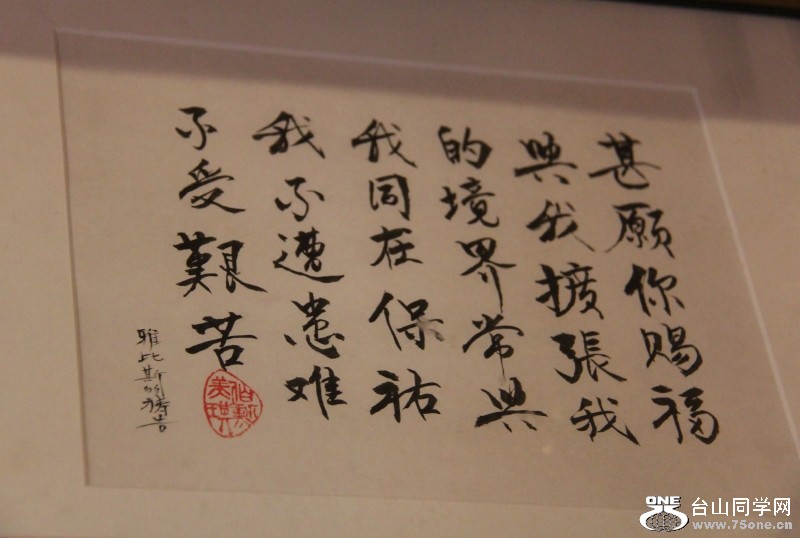 甚願你賜福
與我擴張我
的境界常與
我同在保祐
我不遭患难
不受艱苦
雅比斯的禱告
ONE
台山同学网
www.75one.cn